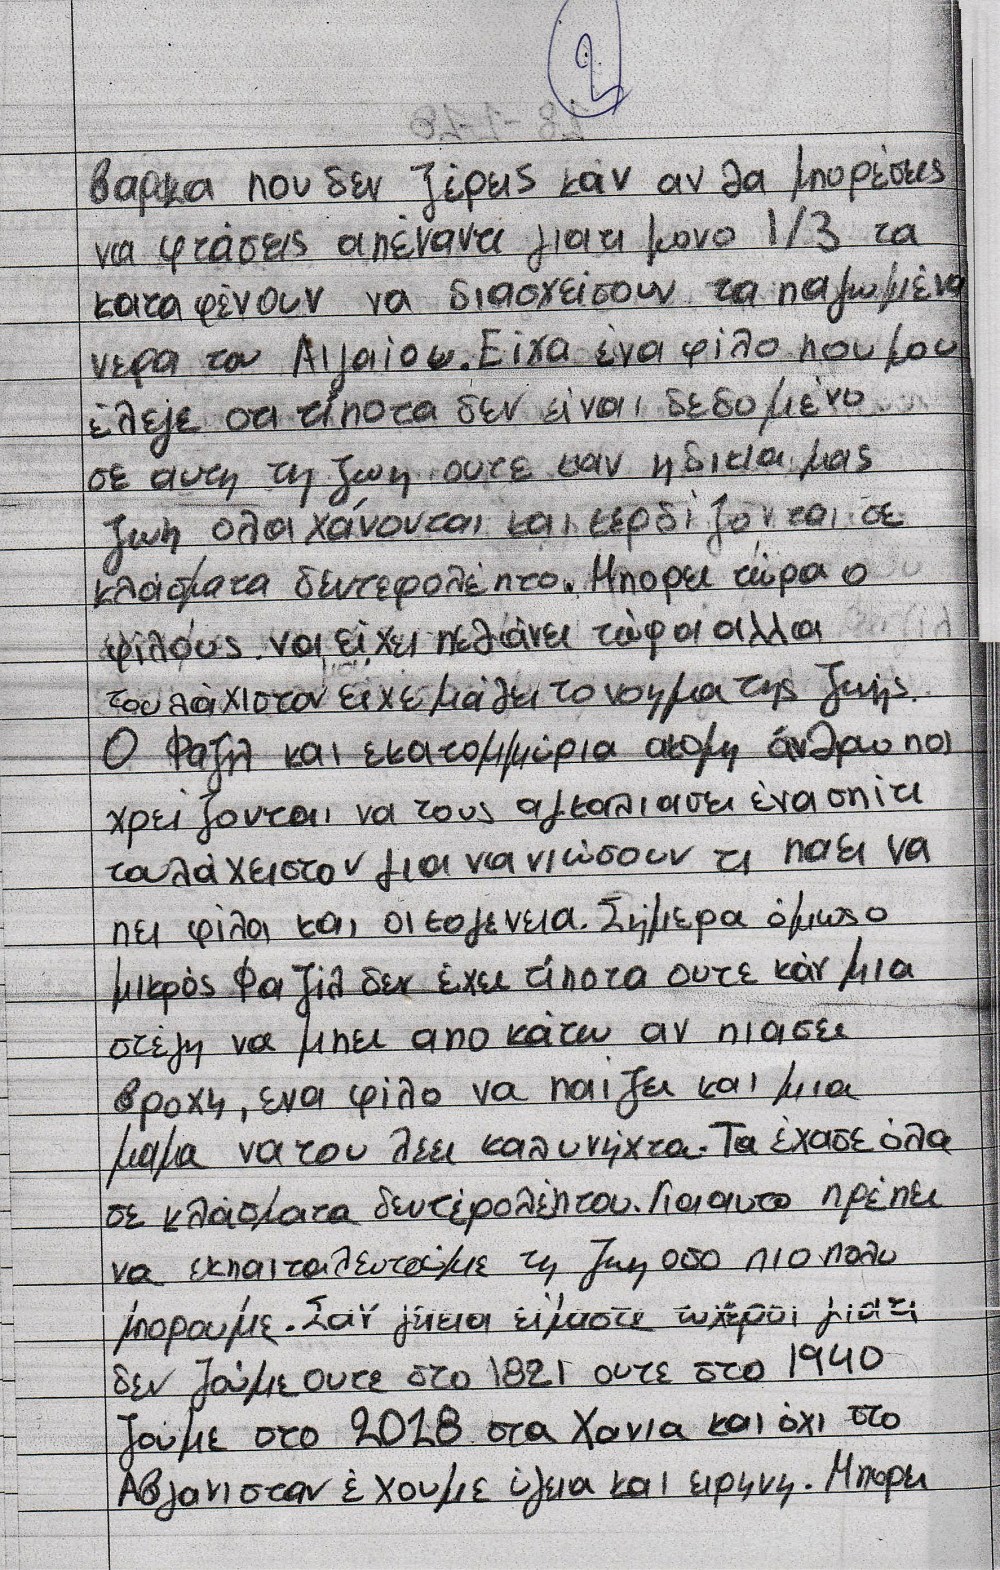 2
28-1-18
βαρκα που δεν ξέρεις κάν αν θα μπορέσεις
να φτάσεις απέναντι γιατι μονο 1/3 τα
καταφένουν να διασχείσουν τα παγωμένα
νερα του Αιγαίου. Είχα ένα φίλο που μου
έλεγε οτι τίποτα δεν είναι δεδομένο
σε αυτη τη ζωη ουτε καν η δικια μας
ζωη ολα χάνονται και κερδίζονται σε
κλάσματα δευτερολέπτο. Μπορει τώρα ο
φίλους να είχει πεθάνει τώρα αλλα
τουλάχιστον είχε μάθει το νοημα της ζωής.
Ο Φαζήλ και εκατομμύρια ακομη άνθρωποι
χρείζονται να τους αγκαλιασει ένα σπίτι
τουλάχειστον για να νιώσουν τι παει να
πει φίλοι και οικογενεια. Σήμερα όμως ο
μικρός Φαζίλ δεν έχει τίποτα ουτε κάν μια
στέγη να μπει απο κάτω αν πιασει
βροχη, ενα φίλο να παίζει και μια
μαμα να του λεει καλυνήχτα. Τα έχασε όλα
σε κλάσματα δευτέρολέπτου. Γιαυτο πρέπει
να εκπαιταλευτούμε τη ζωη οσο πιο πολυ
μπορουμε. Σαν γένια είμαστε τυχεροι γιατι
δεν ζούμε ουτε στο 1821 ουτε στο 1940
ζούμε στο 2018 στα Χανια και όχι στο
Αβγανισταν έχουμε ύγεια και ειρηνη. Μπορει